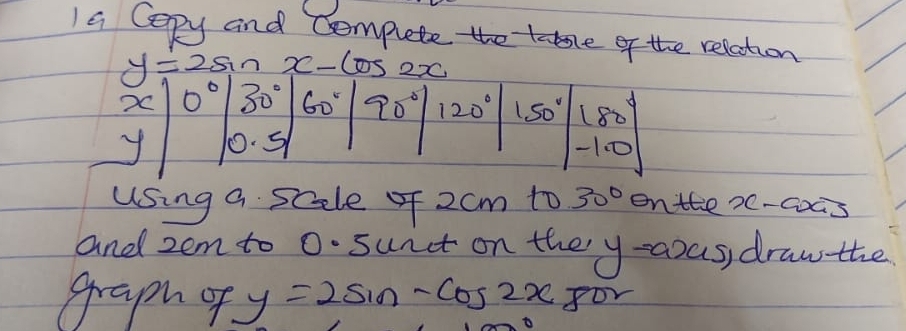 1a Copy and Complete the table of the relation
y = 2sin x - Cos 2x
x | 0° | 30° | 60° | 90° | 120° | 150° | 180°
y | | 0.5 | | | | | -1.0
using a scale of 2cm to 30° on the x-axis
and 2cm to 0.5unit on the y-axis, draw the
graph of y = 2sin - Cos 2x for